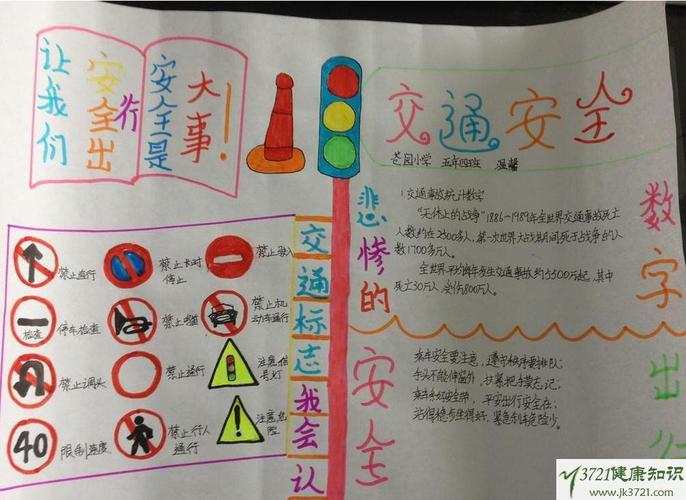 让我们
安全出
行
安全是
大事!
交通安全
苍园小学 五年四班 温馨
悲惨的
数字
1.交通事故统计数字
"无休止的战争"1886-1989年全世界交通事故死亡
人数约在2300多人,第一次世界大战期间死于战争的人
数1700多万人。
全世界平均每年发生交通事故约5500万起,其中
死亡30万人,受伤800万人。
交通标志我会认
禁止直行
禁止长时
停止
禁止驶入
检查
停车检查
禁止鸣笛
禁止机
动车通行
禁止调头
禁止通行
注意信
号灯
40
限制速度
禁止行人
通行
注意危
险
安全
出行
乘车安全要注意,遵守秩序要排队;
手头不能伸窗外,扶紧把手莫忘记;
平安出行安全在;
3721健康知识
www.jk3721.com